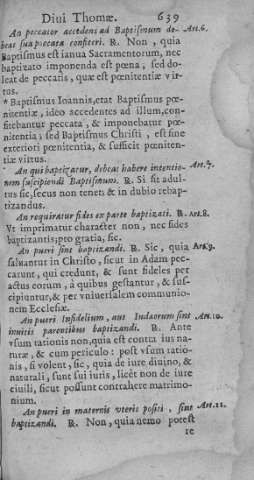 Diui Thomæ. 639
An peccator accedens ad Baptismum de- Art.6.
beat sua peccata confiteri. R. Non, quia
Baptismus est ianua Sacramentorum, nec
baptizato imponenda est pœna, sed do-
leat de peccatis, quæ est pœnitentiæ vir-
tus.
Baptismus Ioannis, erat Baptismus pœ-
nitentiæ, ideo accedentes ad illum, con-
fitebantur peccata, & imponebatur pœ-
nitentia; sed Baptismus Christi, est sine
exteriori pœnitentia, & sufficit pœniten-
tiæ virtus.
An qui baptizatur, debeat habere intentio- Art.7.
nem suscipiendi Baptismum. R. Si sit adul-
tus sic, secus non tenet: & in dubio rebap-
tizandus.
An requiratur fides ex parte baptizati. R. Art.8.
Vt imprimatur character non, nec fides
baptizantis; pro gratia, sic.
An pueri sint baptizandi. R. Sic, quia Art.9.
saluantur in Christo, sicut in Adam pec-
carunt, qui credunt, & sunt fideles per
actus eorum, à quibus gestantur, & sus-
cipiuntur, & per vniuersalem communio-
nem Ecclesiæ.
An pueri Infidelium, aut Iudæorum sint Art.10.
inuitis parentibus baptizandi. R. Ante
vsum rationis non, quia est contra ius na-
turæ, & cum periculo: post vsum ratio-
nis, si volent, sic, quia de iure diuino, &
naturali, sunt sui iuris, licèt non de iure
ciuili, sicut possunt contrahere matrimo-
nium.
An pueri in maternis vteris positi, sint Art.11.
baptizandi. R. Non, quia nemo potest
re